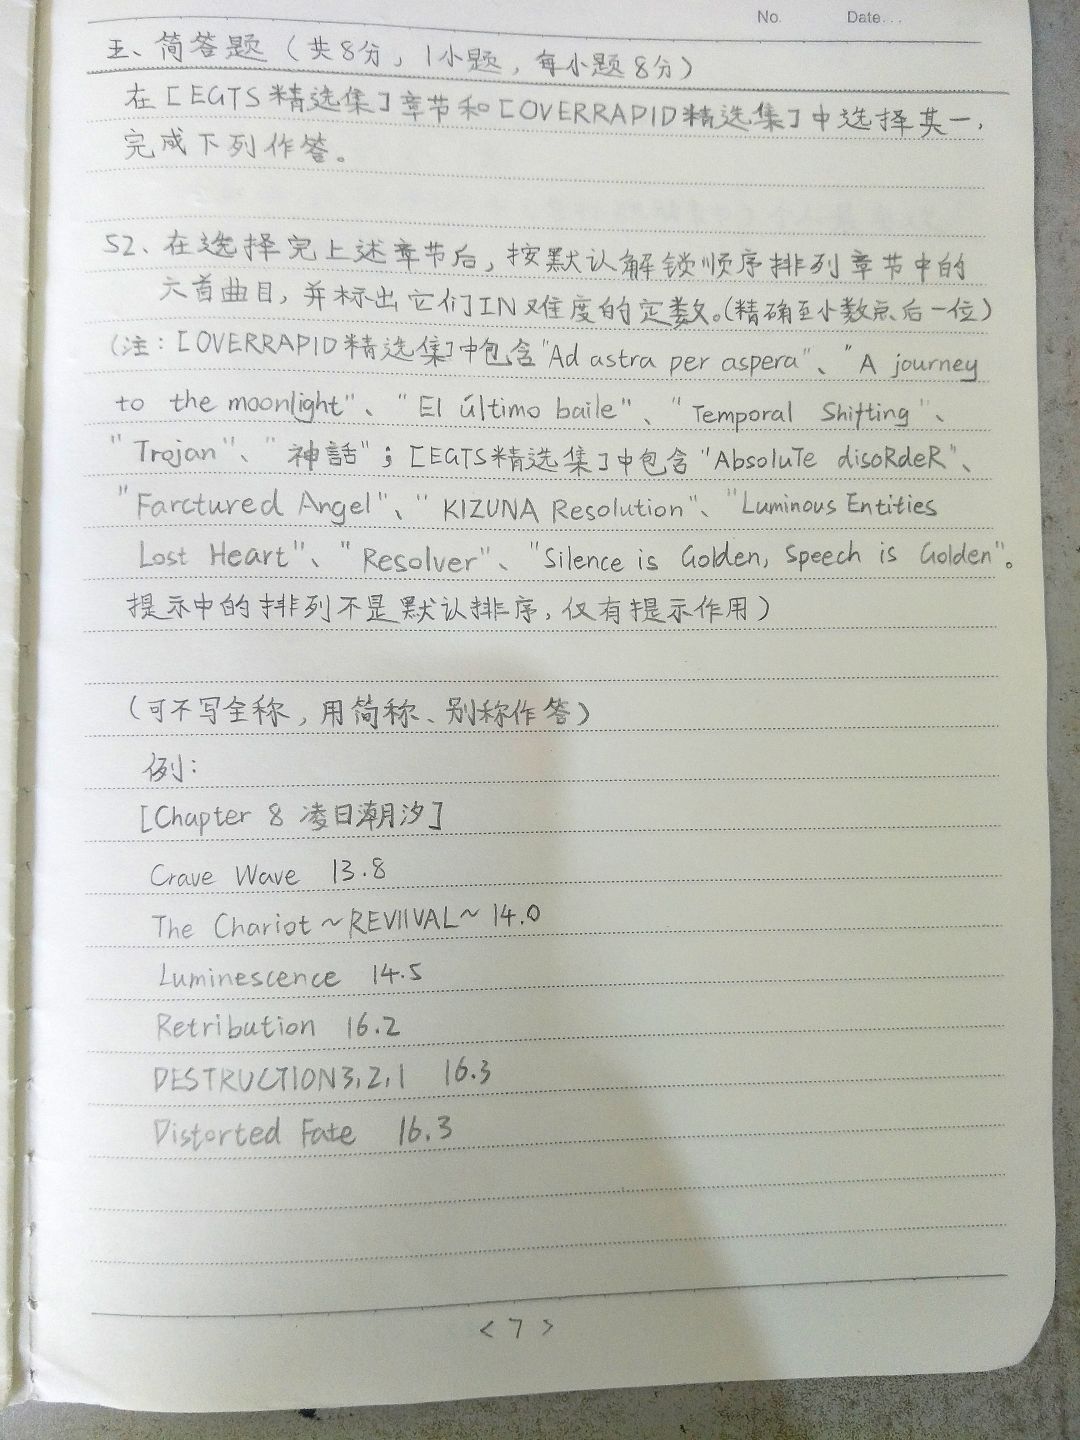 No. Date...
五、简答题（共8分，1小题，每小题8分）
在［EGTS精选集］章节和［OVERRAPID精选集］中选择其一，
完成下列作答。
52、在选择完上述章节后，按默认解锁顺序排列章节中的
六首曲目，并标出它们IN难度的定数。（精确至小数点后一位）
（注：［OVERRAPID精选集］中包含"Ad astra per aspera"、"A journey
to the moonlight"、"El último baile"、"Temporal Shifting"、
"Trojan"、"神話"；［EGTS精选集］中包含"AbsoluTe disoRdeR"、
"Farctured Angel"、"KIZUNA Resolution"、"Luminous Entities
Lost Heart"、"Resolver"、"Silence is Golden, Speech is Golden"。
提示中的排列不是默认排序，仅有提示作用）
（可不写全称，用简称、别称作答）
例：
［Chapter 8 凌日潮汐］
Crave Wave 13.8
The Chariot ~REVIIVAL~ 14.0
Luminescence 14.5
Retribution 16.2
DESTRUCTION3,2,1 16.3
Distorted Fate 16.3
<7>